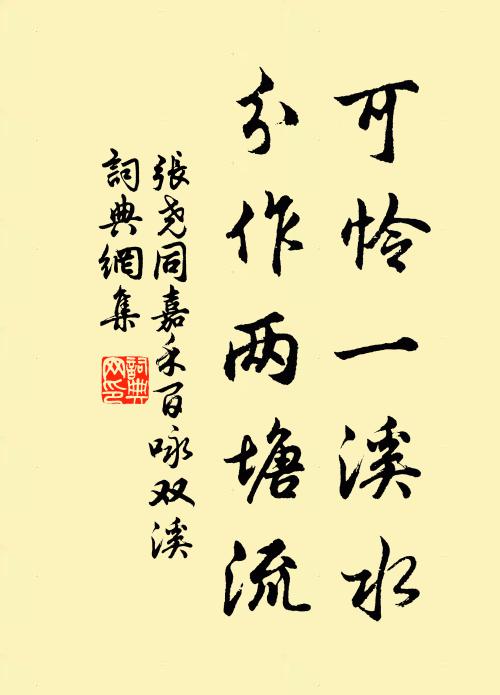 可怜一溪水
分作两塘流
張尧同嘉禾百咏双溪
詞典網集
詞典网印